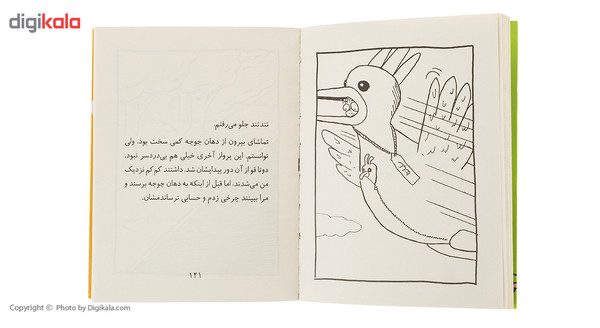 digikala
تندتند جلو می‌رفتم.
تماشای بیرون از دهان جوجه کمی سخت بود. ولی
توانستم. این پرواز آخری خیلی هم بی‌دردسر نبود.
دوتا قو از آن دور پیدایشان شد. داشتند کم کم نزدیک
من می‌شدند. اما قبل از اینکه به دهان جوجه برسند و
مرا ببینند چرخی زدم و حسابی ترساندمشان.
۱۲۱
Copyright © Photo by Digikala.com